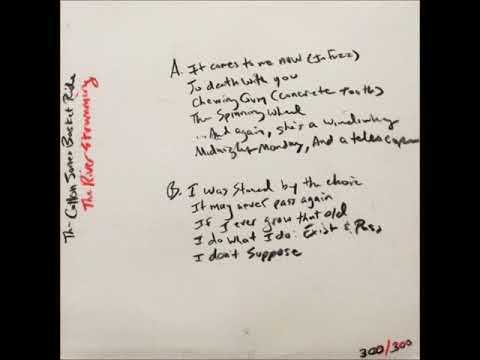 The Cotton Sorter Basket Ride
The River Strumming
A. It comes to me now (In Fuzz)
To death with you
Chewing Gum (Concrete Youth)
The Spinning Wheel
...And again, she's a
Midnight Monday, And a
B. I was stoned by the choice
It may never pass again
If I ever grow that old
I do what I do: Exist & Pass
I don't suppose
300/300